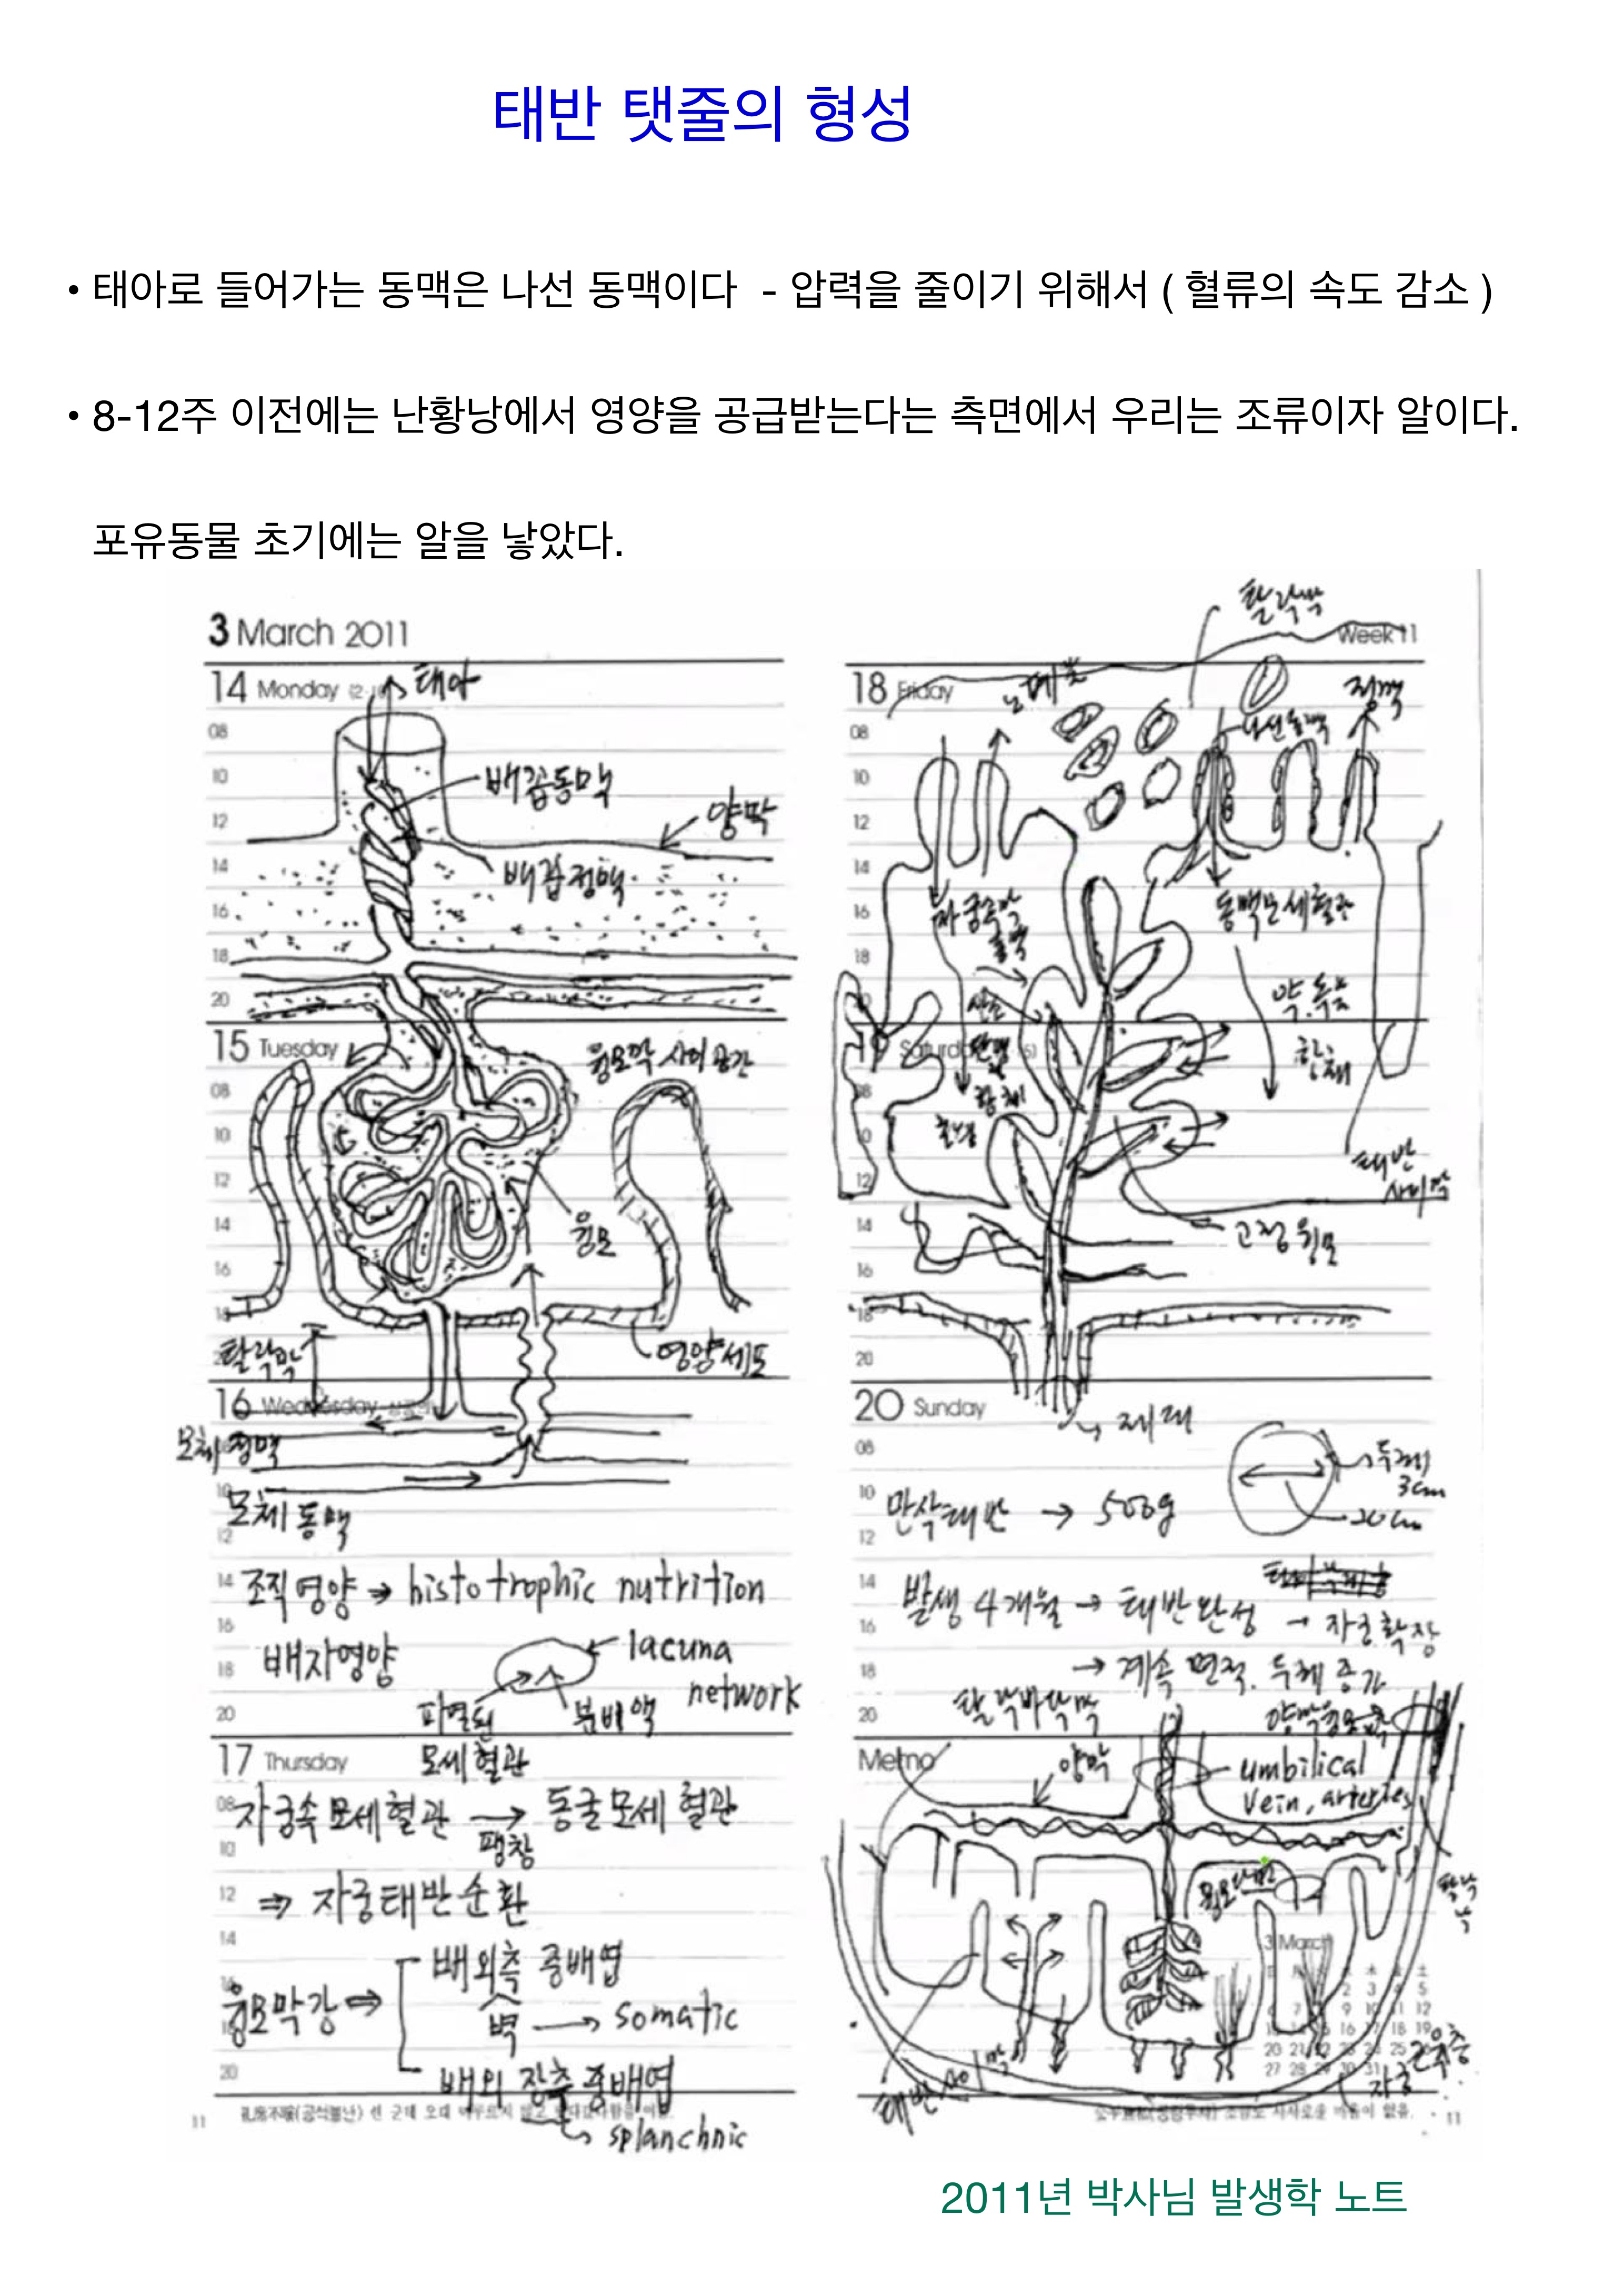 태반 탯줄의 형성
• 태아로 들어가는 동맥은 나선 동맥이다 - 압력을 줄이기 위해서 ( 혈류의 속도 감소 )
• 8-12주 이전에는 난황낭에서 영양을 공급받는다는 측면에서 우리는 조류이자 알이다.
포유동물 초기에는 알을 낳았다.
3 March 2011
14 Monday
태아
08
10
배꼽동맥
12
양막
14
배꼽정맥
16
18
20
15 Tuesday
융모막 사이 공간
08
10
12
14
융모
16
탈락막
영양세포
16 Wednesday
모체정맥
모체동맥
12
14
조직영양 → histotrophic nutrition
16
배자영양
lacuna
network
18
20
파열된
분비액
모세혈관
17 Thursday
08
자궁속모세혈관 → 동굴모세혈관
팽창
10
12
⇒ 자궁태반순환
14
융모막강 ⇒
배외측 중배엽
벽 → somatic
20
배외 장측 중배엽
splanchnic
11
탈락막
Week 11
18 Friday
정맥
08
나선동맥
10
12
14
16
자궁속막
동맥모세혈관
18
산소
약.독소
항체
19 Saturday
항체
12
태반
사이막
14
고정융모
16
18
20
제대
20 Sunday
08
두께
3cm
10
만삭태반 → 500g
20cm
12
14
발생 4개월 → 태반완성 → 자궁확장
16
18
→ 계속 면적. 두께 증가
20
탈락바닥막
Memo
양막
umbilical
vein, arteries
3 March
자궁근육층
11
2011년 박사님 발생학 노트